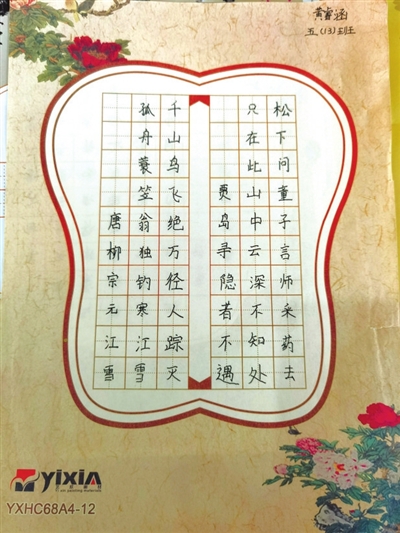 黄睿涵
五(13)班
松下问童子言师采药去
只在此山中云深不知处
贾岛寻隐者不遇
千山鸟飞绝万径人踪灭
孤舟蓑笠翁独钓寒江雪
唐柳宗元江雪
yixin
YXHC68A4-12